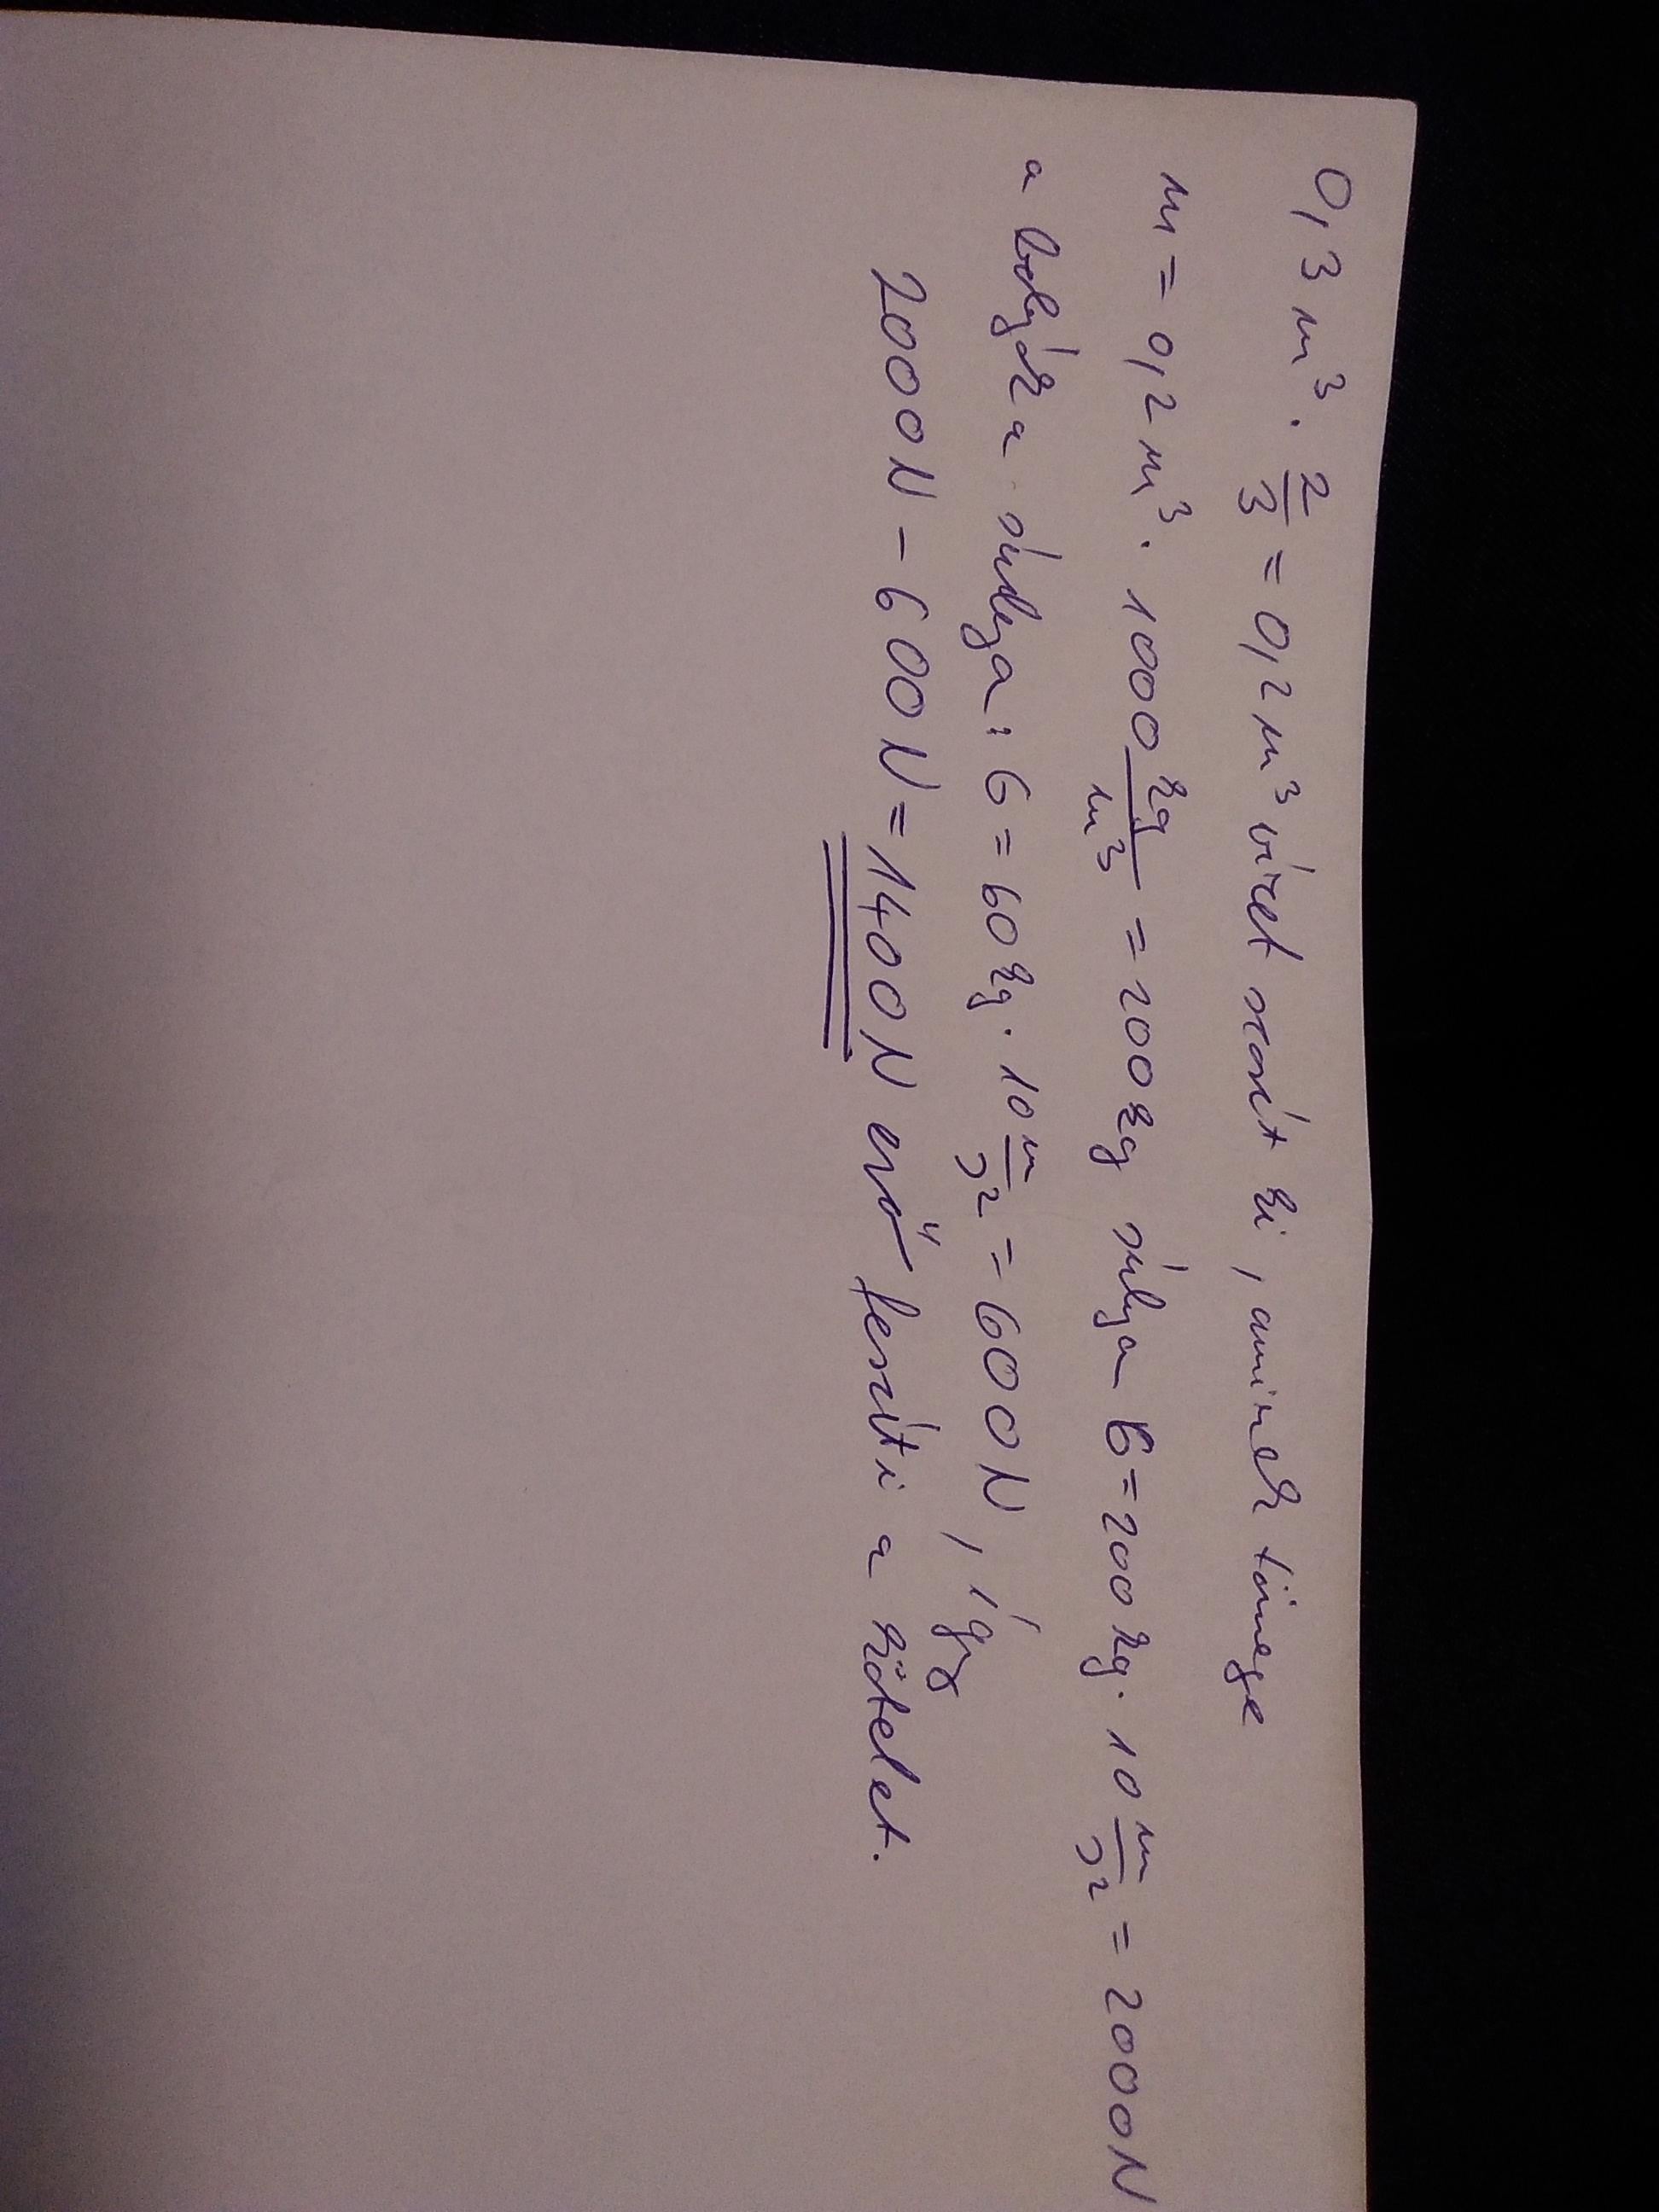 0,3 m³ · 2/3 = 0,2 m³ vizet szorít ki, aminek tömege
m = 0,2 m³ · 1000 kg/m³ = 200 kg súlya G = 200 kg · 10 m/s² = 2000 N
a bolyák a súlya: G = 60 kg · 10 m/s² = 600 N, így
2000 N - 600 N = 1400 N erő feszíti a kötelet.